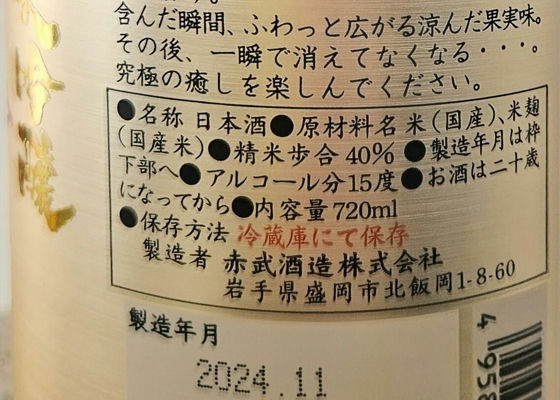 含んだ瞬間、ふわっと広がる涼んだ果実味。
その後、一瞬で消えてなくなる・・・。
究極の癒しを楽しんでください。
●名称 日本酒●原材料名 米(国産)、米麹
(国産米)●精米歩合 40% ●製造年月は枠
下部へ●アルコール分15度●お酒は二十歳
になってから●内容量720ml
●保存方法 冷蔵庫にて保存
製造者 赤武酒造株式会社
岩手県盛岡市北飯岡1-8-60
製造年月
2024.11
4 958
吟醸